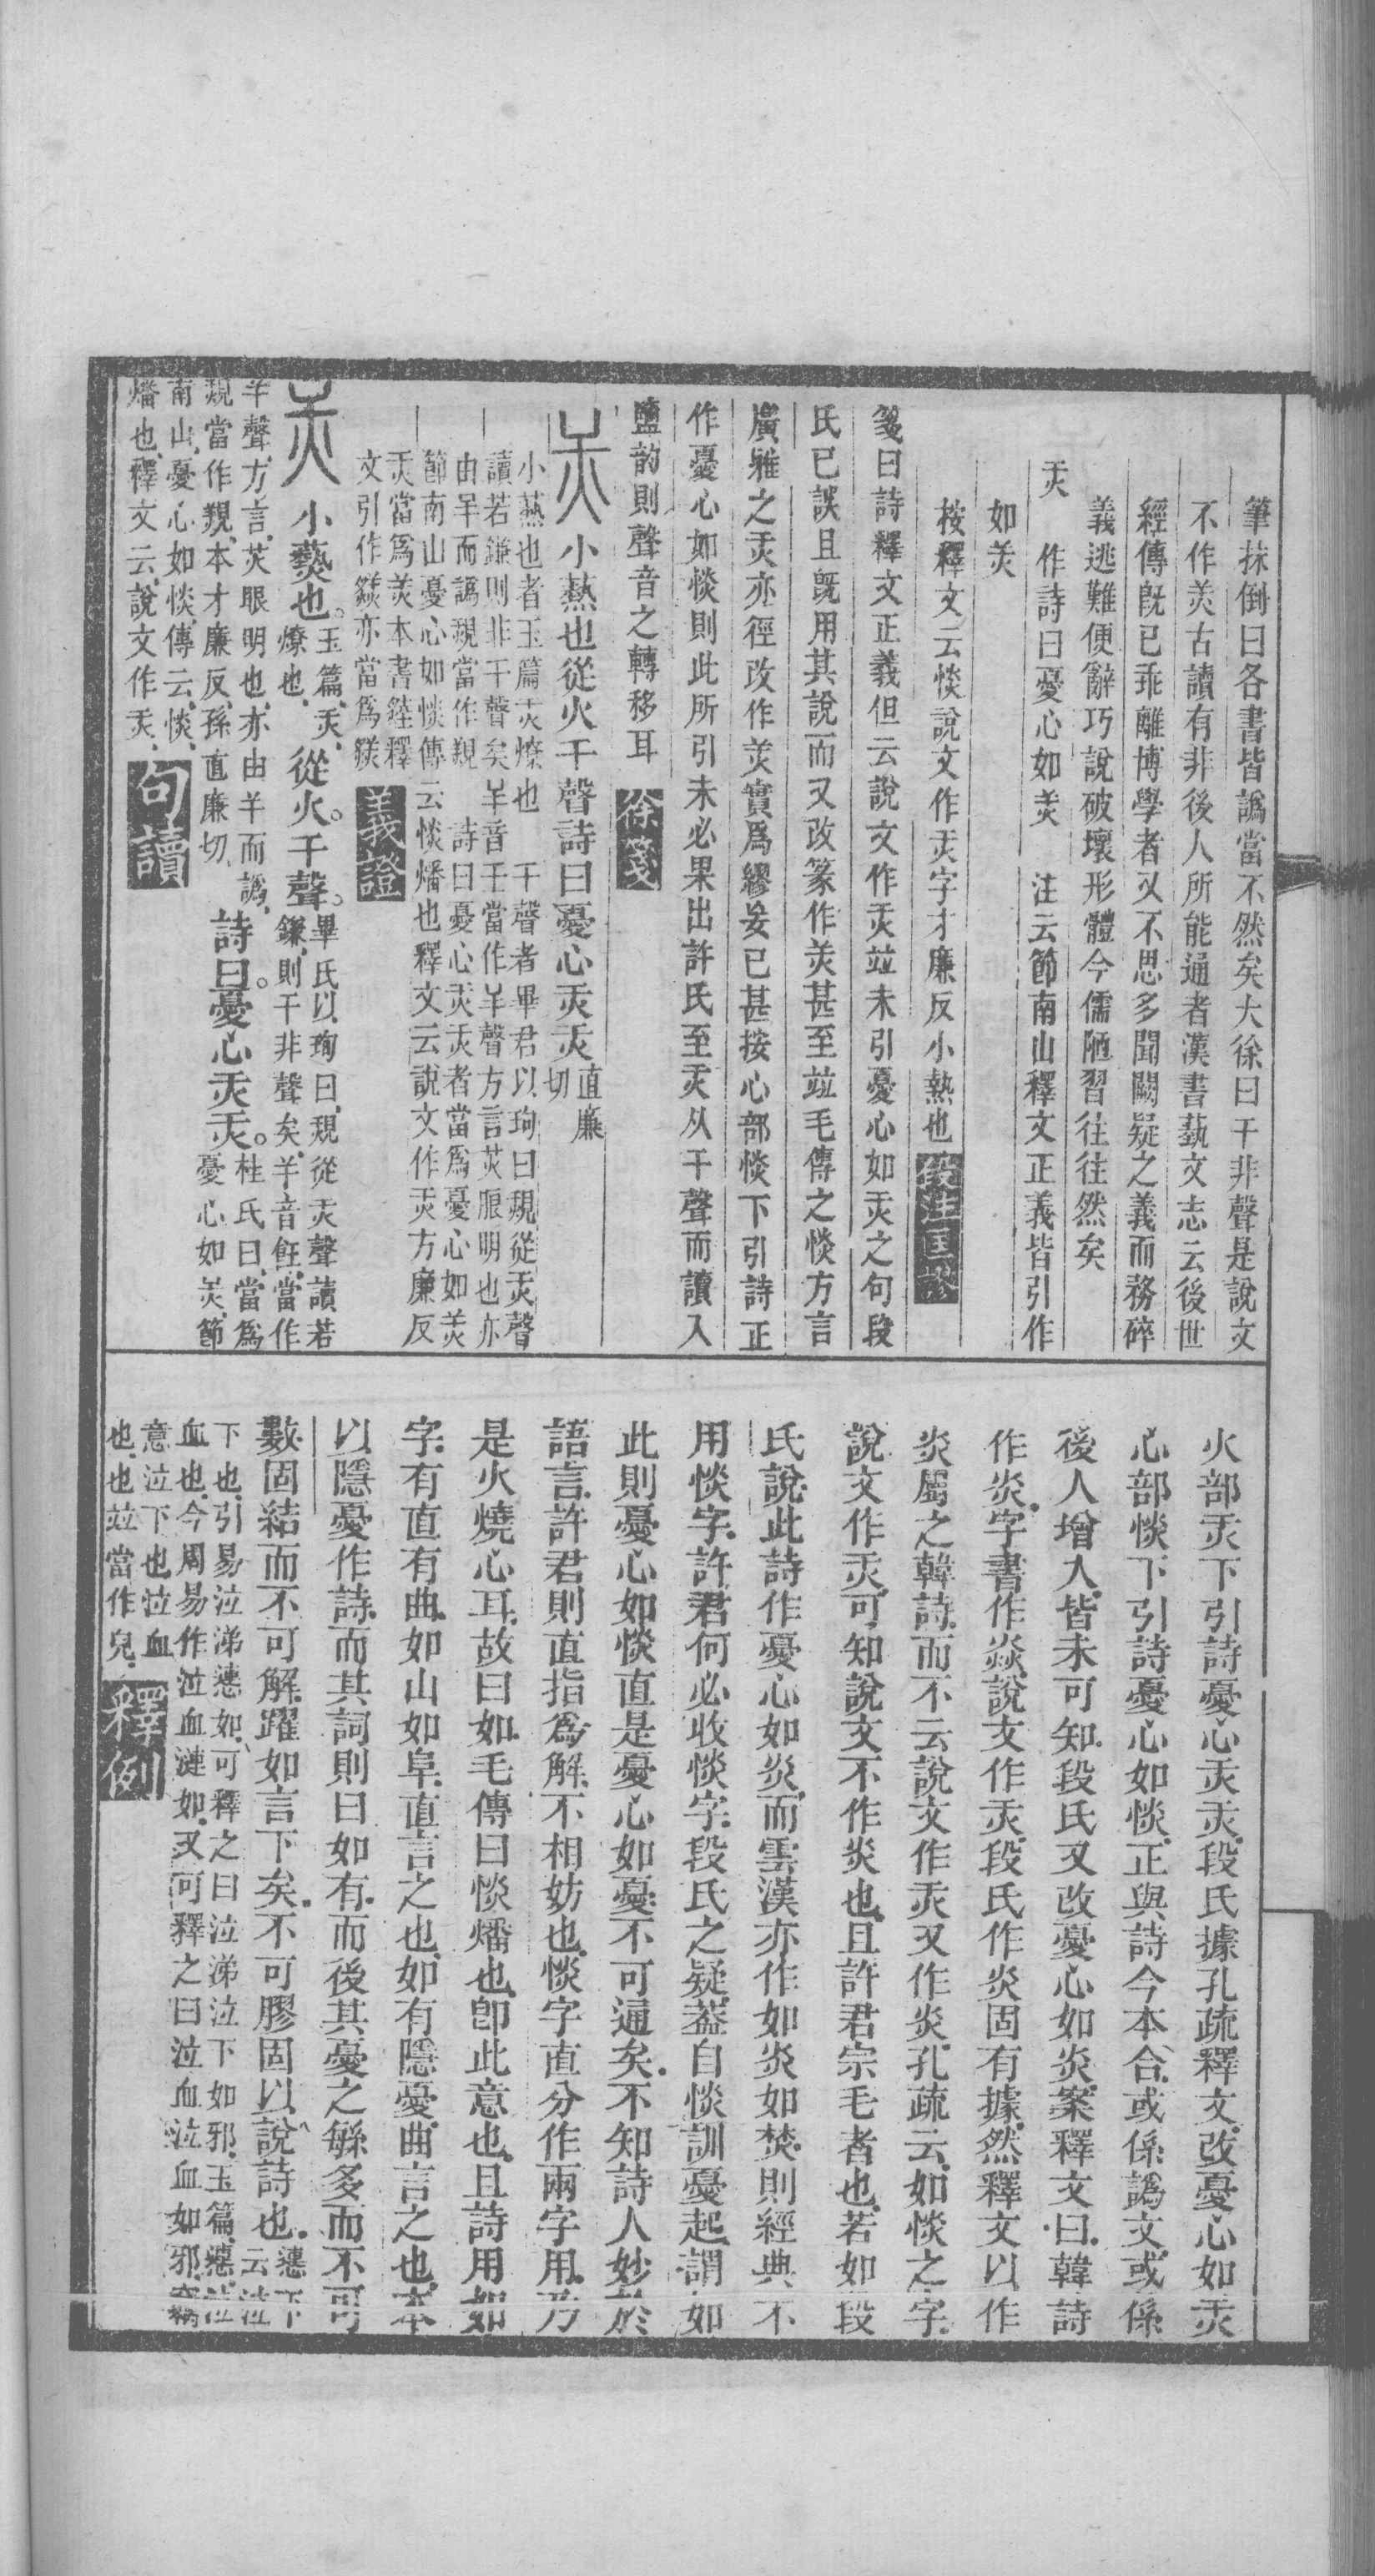 筆抹倒曰各書皆譌當不然矣大徐曰干非聲是說文
不作羙古讀有非後人所能通者漢書藝文志云後世
經傳旣已乖離博學者又不思多聞闕疑之義而務碎
義逃難便辭巧說破壞形體今儒陋習往往然矣
灻　作詩曰憂心如羙　注云節南山釋文正義皆引作
如羙
按釋文云惔說文作灻字才廉反小熱也 段注匡謬
箋曰詩釋文正義但云說文作灻竝未引憂心如灻之句段
氏已誤且旣用其說而又改篆作羙甚至竝毛傳之惔方言
廣雅之灻亦徑改作羙實爲繆妄已甚按心部惔下引詩正
作憂心如惔則此所引未必果出許氏至灻从干聲而讀入
鹽韵則聲音之轉移耳 徐箋
小熱也從火干聲詩曰憂心灻灻 直廉切
小爇也者玉篇灻燎也　干聲者畢君以珣曰覢從灻聲
讀若鎌則非干聲矣𢆉音壬當作𢆉聲方言羙眼明也亦
由𢆉而譌覢當作覢　詩曰憂心灻灻者當爲憂心如羙
節南山憂心如惔傳云惔燔也釋文云說文作灻方廉反
灻當爲羙本書
文引作錟亦當爲 義證
小爇也。玉篇、灻、燎也、從火。干聲。畢氏以珣曰、覢從灻聲讀若鎌、則干非聲矣、𢆉音飪、當作
𢆉聲、方言、羙眼明也、亦由𢆉而譌、
覢當作覢、本才廉反、孫直廉切、詩曰。憂心灻灻。桂氏曰、當爲憂心如羙、節
南山、憂心如惔、傳云、惔、
燔也、釋文云、說文作灻、 句讀
火部灻下引詩憂心灻灻、段氏據孔疏釋文、改憂心如灻
心部惔下引詩憂心如惔、正與詩今本合、或係譌文、或係
後人增入、皆未可知、段氏又改憂心如炎、案釋文曰、韓詩
作炎、字書作焱、說文作灻、段氏作炎固有據、然釋文以作
炎屬之韓詩、而不云說文作灻又作炎、孔疏云、如惔之字、
說文作灻、可知說文不作炎也、且許君宗毛者也、若如段
氏說、此詩作憂心如炎、而雲漢亦作如炎如焚、則經典不
用惔字、許君何必收惔字、段氏之疑、葢自惔訓憂起、謂如
此則憂心如惔直是憂心如憂、不可通矣、不知詩人妙於
語言、許君則直指爲解、不相妨也、惔字直分作兩字用、乃
是火燒心耳、故曰如、毛傳曰惔燔也、卽此意也、且詩用如
字、有直有曲、如山如阜、直言之也、如有隱憂、曲言之也、本
以隱憂作詩、而其詞則曰如有、而後其憂之緐多而不可
數、固結而不可解、躍如言下矣、不可膠固以說詩也、㦁下云泣
下也、引易泣涕㦁如、可釋之曰泣涕泣下如邪、玉篇、㦁、泣
血也、今周易作泣血漣如、又可釋之曰泣血泣血如邪、竊
意泣下也泣血
也、也竝當作皃、 釋例